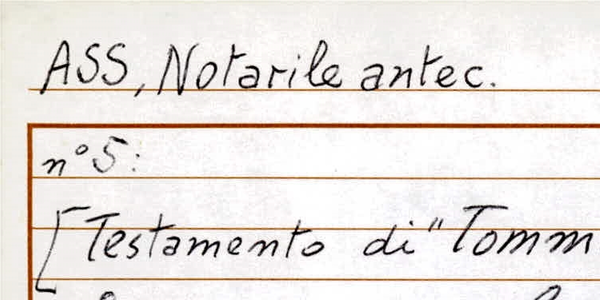 ASS, Notarile antec.
n° 5:
[Testamento di "Tomm